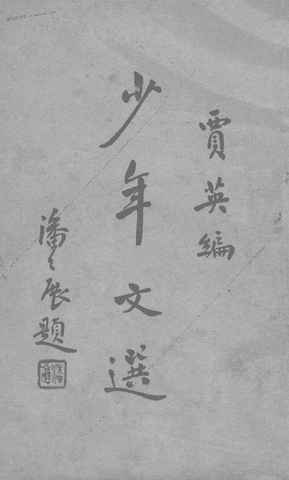 賈英編
少年文選
潘公展題